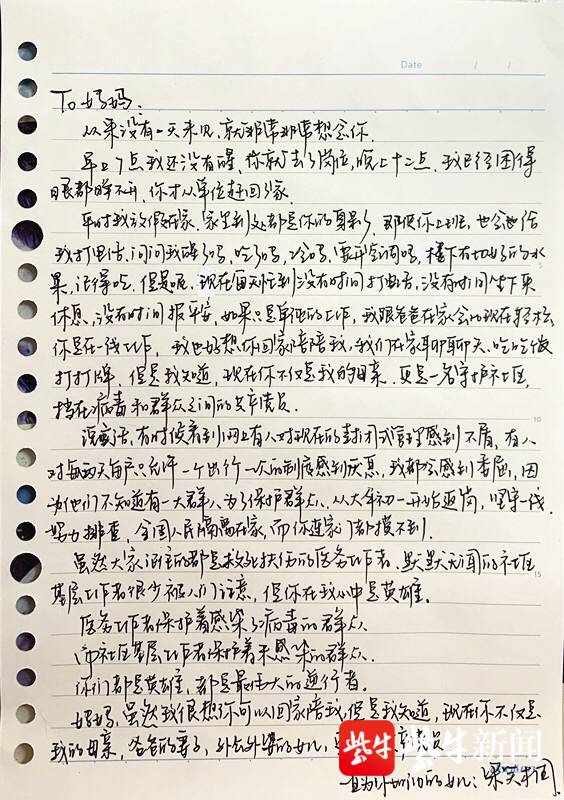 Date / /
To 妈妈.
从来没有一天未见,就非常非常想念你.
早上7点我还没有醒,你就去了岗位,晚上十二点,我已经困得
眼都睁不开,你才从单位赶回家.
平时我放假在家,家里到处都是你的身影,即使你上班,也会给
我打电话,问问我醒了吗,吃了吗,冷吗,要开空调吗,楼下有切好的水
果,记得吃.但是呢,现在每天忙到没有时间打电话,没有时间坐下来
休息,没有时间报平安,如果只是单位的工作,我跟爸爸在家会比现在轻松
你是在一线工作,我也好想你回家陪陪我,我们在家聊聊天、吃吃饭
打打牌.但是我知道,现在你不仅是我的母亲,更是一名守护社区,
挡在病毒和群众之间的共产党员.
说实话,有时候看到网上有人对现在的封闭式管理感到不屑,有人
对每两天每户只允许一个出行一次的制度感到厌恶,我都会感到委屈,因
为他们不知道有一大群人为了保护群众,从大年初一开始返岗,坚守一线,
努力排查,全国人民隔离在家,而你连家门都摸不到.
虽然大家关注的都是救死扶伤的医务工作者,默默无闻的社区
基层工作者很少被人们注意,但你在我心中是英雄.
医务工作者保护着感染了病毒的群众
而社区基层工作者保护着未感染的群众.
你们都是英雄,都是最伟大的逆行者.
妈妈,虽然我很想你可以回家陪我,但是我知道,现在你不仅是
我的母亲,爸爸的妻子,外公外婆的女儿,更 党员
紫牛新闻
的女儿: